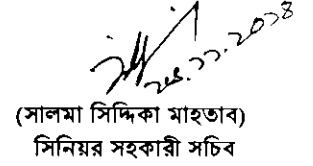 ২৫.১১.২০১৪
(সালমা সিদ্দিকা মাহতাব)
সিনিয়র সহকারী সচিব